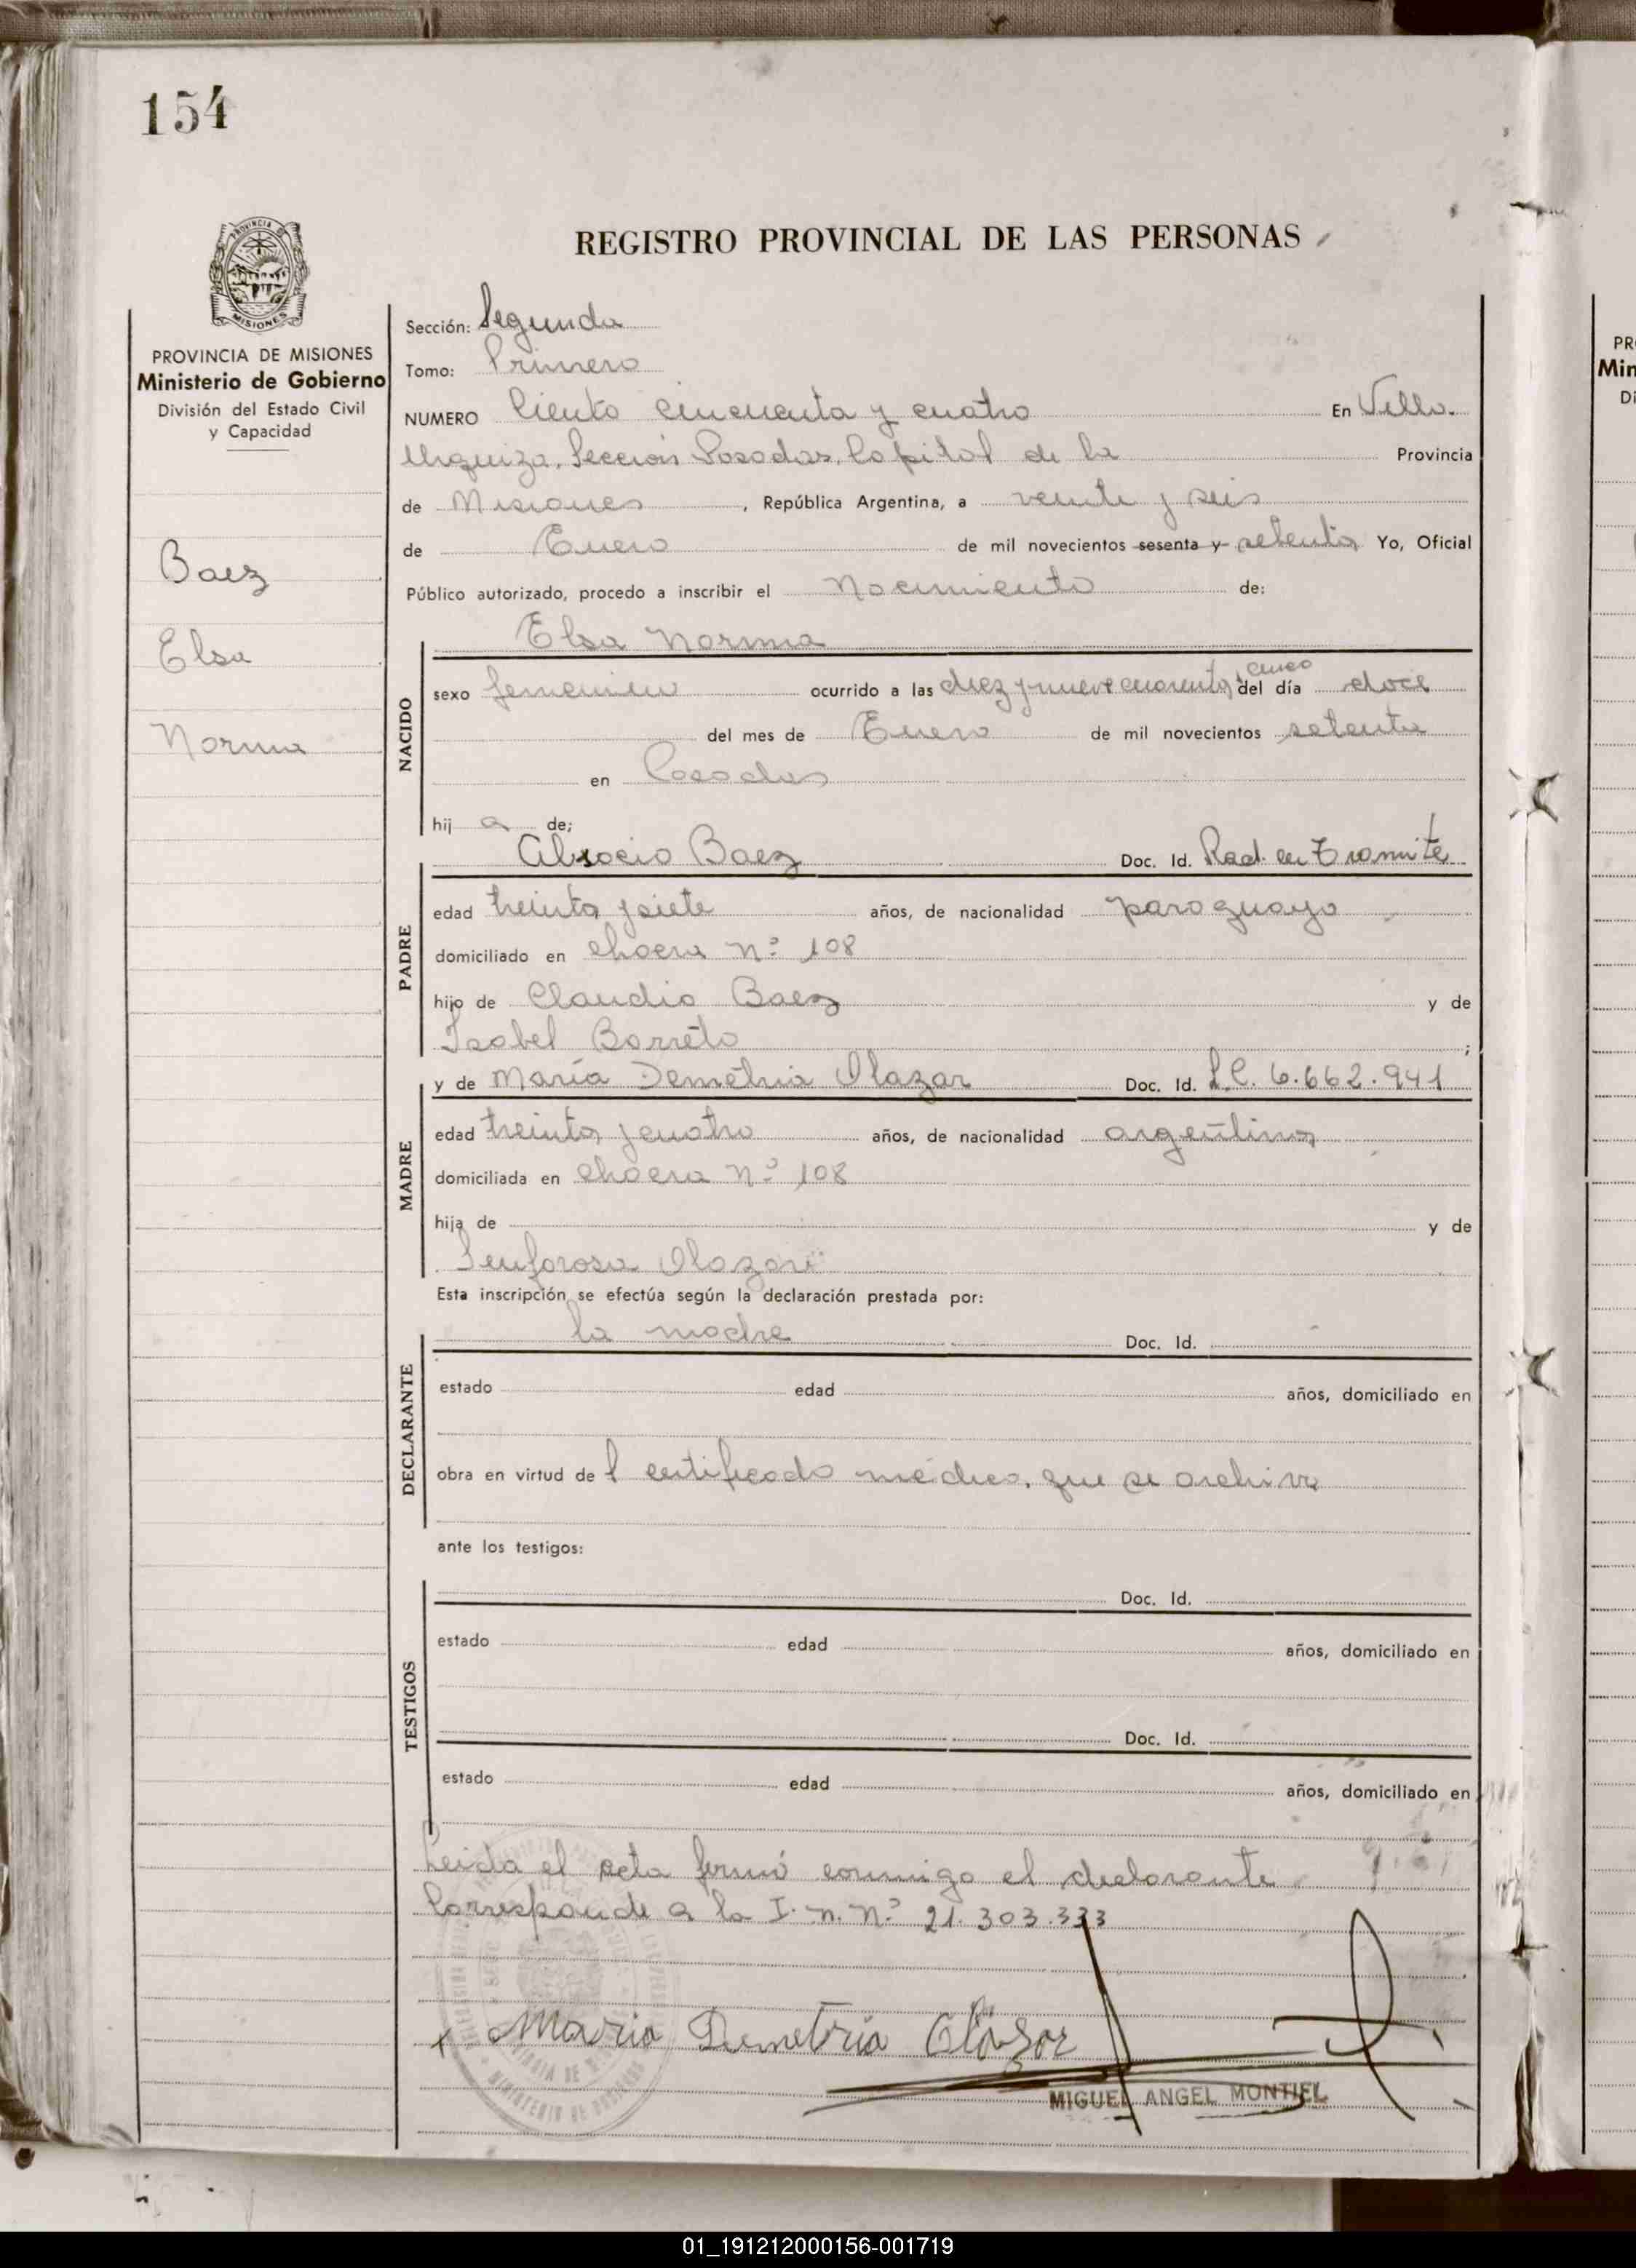 154
REGISTRO PROVINCIAL DE LAS PERSONAS
PROVINCIA DE
MISIONES
PROVINCIA DE MISIONES
Ministerio de Gobierno
División del Estado Civil
y Capacidad
Baez
Elsa
Norma
Sección: Segunda
Tomo: Primero
NUMERO Ciento cincuenta y cuatro En Villa
Urquiza, Sección Posadas, Capital de la Provincia
de Misiones, República Argentina, a veinte y seis
de Enero de mil novecientos sesenta y setenta Yo, Oficial
Público autorizado, procedo a inscribir el Nacimiento de:
Elsa Norma
NACIDO
sexo femenino ocurrido a las diez y nueve cuarenta y cinco del día doce
del mes de Enero de mil novecientos setenta
en Posadas
hij a de;
Baez Doc. Id. Rad. en Tramite
PADRE
edad treinta y siete años, de nacionalidad paraguayo
domiciliado en chacra Nº 108
hijo de Claudio Baez y de
Isabel Barreto ;
y de María Demetria Olazar Doc. Id. L.C. 6.662.941
MADRE
edad treinta y cuatro años, de nacionalidad argentina
domiciliada en chacra Nº 108
hija de y de
Senforosa
Esta inscripción se efectúa según la declaración prestada por:
la madre Doc. Id.
DECLARANTE
estado edad años, domiciliado en
obra en virtud de l certificado médico, que se archiva
ante los testigos:
Doc. Id.
TESTIGOS
estado edad años, domiciliado en
Doc. Id.
estado edad años, domiciliado en
Leida el acta firmó conmigo el declarante
Corresponde a la I. N. Nº 21.303.333
x Maria Demetria Olasar
MIGUEL ANGEL MONTIEL
01_191212000156-001719